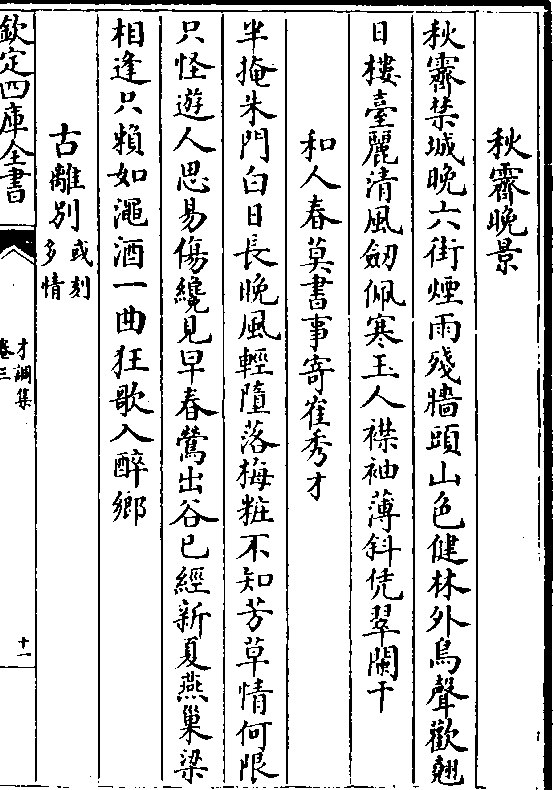 秋霽晚景
秋霽禁城晚六街煙雨殘牆頭山色健林外鳥聲歡翹
日樓臺麗清風劒佩寒玉人襟袖薄斜凭翠闌干
和人春莫書事寄崔秀才
半掩朱門白日長晚風輕墮落梅粧不知芳草情何限
只怪遊人思易傷纔見早春鶯出谷已經新夏燕巢梁
相逢只賴如澠酒一曲狂歌入醉鄉
古離別或刻多情
欽定四庫全書
才調集
卷三
十一